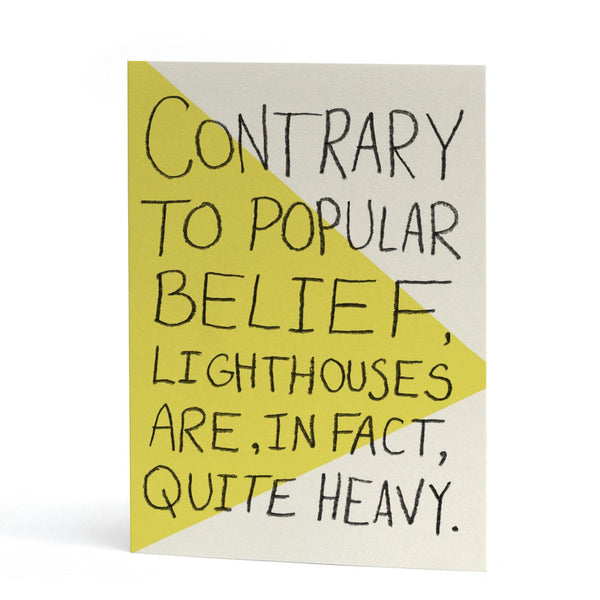 CONTRARY
TO POPULAR
BELIEF,
LIGHTHOUSES
ARE, IN FACT,
QUITE HEAVY.